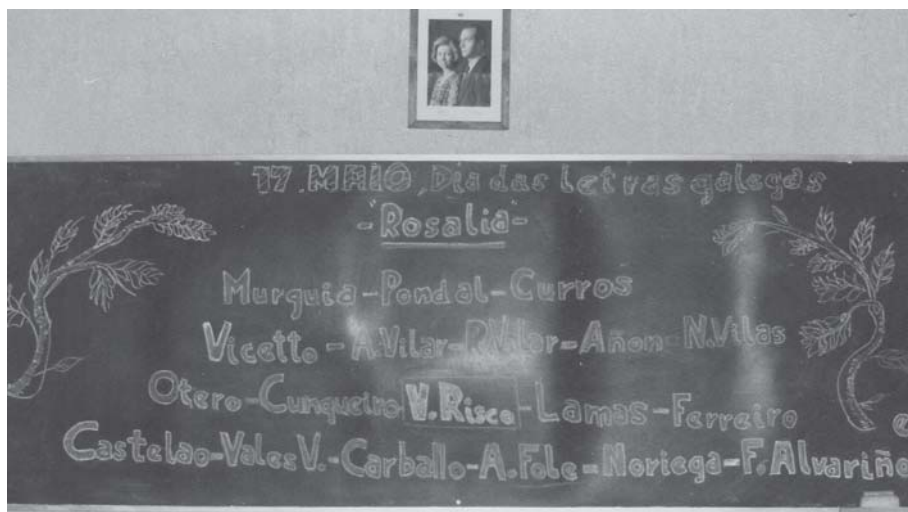 17.MAIO, Dia das letras galegas
-"Rosalia"-
Murguia-Pondal-Curros
Vicetto-A.Vilar-P.Vilar-Añon-N.Vilas
Otero-Cunqueiro V.Risco-Lamas-Ferreiro
Castelao-Vales V.-Carballo-A.Fole-Noriega-F.Alvariñ